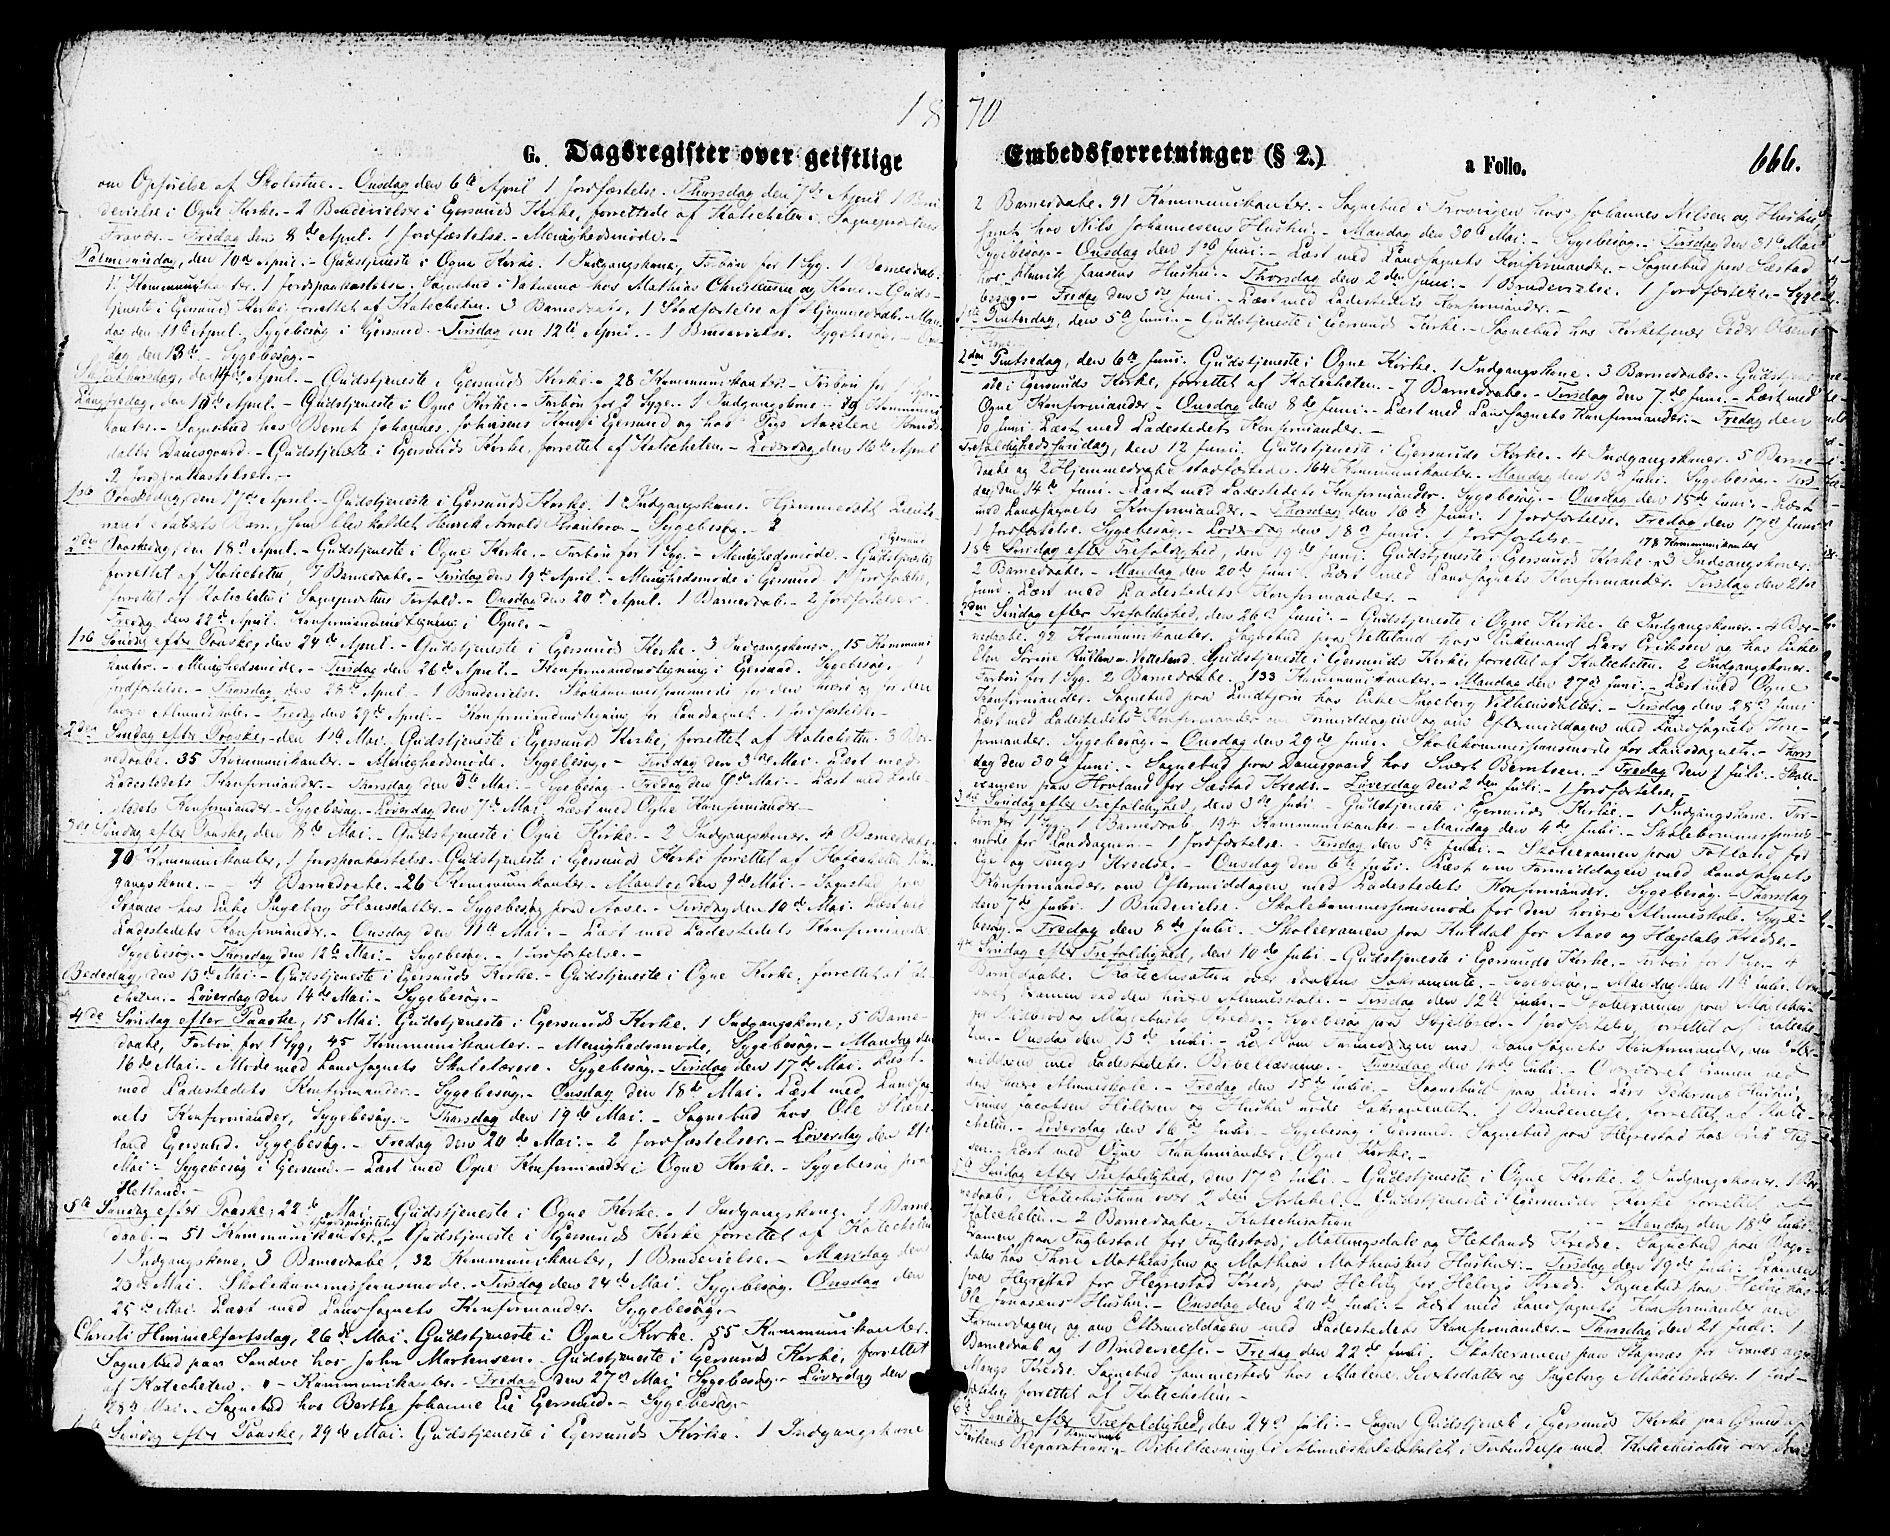 1870
G. Dagsregister over geistlige
om Opførelse af Skolestue. - Onsdag den 6te April 1 Jordfæstelse. Thorsdag den 7de April 1 Bru-
devielse i Ogne Kirke. - 2 Brudevielser i Egersunds Kirke, forrettede af Katecheten i Sognepræstens
Fravær. - Fredag den 8de April. 1 Jordfæstelse. - Menighedsmøde. -
Palmesøndag, den 10de April. - Gudstjeneste i Ogne Kirke. 1 Indgangskone, Forbøn for 1 Syg. 1 Barnedaab.
Kommunikanter. 1 Jordpaakastelse. Sognebud i hos Mathias Christensen og Kone. - Guds-
tjeneste i Egersunds Kirke, forrettet af Katecheten. 3 Barnedaabe, 1 Stadfæstelse af Hjemmedaab. - Man-
dag den 11te April. Sygebesøg i Egersund. - Tirsdag den 12te April. - 1 Brudevielse. Sygebesøg. - Ons-
dag den 13de - Sygebesøg. -
Skjærthorsdag, den 14de April. - Gudstjeneste i Egersunds Kirke. - 28 Kommunikanter. - Forbøn for 1 Syg.
Langfredag, den 15de April. - Gudstjeneste i Ogne Kirke. - Forbøn for 2 Syge. - 1 Indgangskone. - Kommuni-
kanter. - Sognebud hos Bernt Johannes Johnsens Kone i Egersund og hos Pige
datter Damsgaard. - Gudstjeneste i Egersunds Kirke, forrettet af Katecheten. - Løverdag den 16de April
2 Jordpaakastelser. -
1ste Paaskedag, den 17de April. - Gudstjeneste i Egersunds Kirke. 1 Indgangskone. Hjemmedøbt
Barn, som blev kaldet Henrik Arnold - Sygebesøg. -
2den Paaskedag, den 18de April. - Gudstjeneste i Ogne Kirke. - Forbøn for 1 Syg. - Menighedsmøde. - Gudstjeneste i Egersund
forrettet af Katecheten, 7 Barnedaabe. - Tirsdag den 19de April. - Menighedsmøde i Egersund. 1 Jordfæstelse,
forrettet af Katecheten i Sognepræstens Forfald. - Onsdag den 20de April. 1 Barnedaab. - 2 Jordfæstelser.
Fredag den 22de April. Konfirmandmodtagning i Ogne. -
1ste Søndag efter Paaske, den 24de April. - Gudstjeneste i Egersunds Kirke. 3 Indgangskoner. 15 Kommuni-
kanter. - Menighedsmøde. - Tirsdag den 26de April. - Konfirmandmodtagning i Egersund. Sygebesøg. 1
Jordfæstelse. - Thorsdag den 28de April. - 1 Brudevielse. Skolekommissionsmøde for den høiere og for den
lavere Almueskole. - Fredag den 29de April. - Konfirmandmodtagning for Landsognet. 1 Jordfæstelse. -
2den Søndag efter Paaske, den 1ste Mai. Gudstjeneste i Egersunds Kirke, forrettet af Katecheten. 3 Bar-
nedaabe. 35 Kommunikanter. - Menighedsmøde. Sygebesøg. - Tirsdag den 3die Mai. Læst med
Ladestedets Konfirmander. - Thorsdag den 5te Mai. - Sygebesøg. - Fredag den 6te Mai. - Læst med Lade-
stedets Konfirmander. - Sygebesøg. - Løverdag den 7de Mai. Læst med Ogne Konfirmander. -
3die Søndag efter Paaske, den 8de Mai. - Gudstjeneste i Ogne Kirke. - 2 Indgangskoner. 4 Barnedaabe.
70 Kommunikanter, 1 Jordpaakastelse. Gudstjeneste i Egersunds Kirke forrettet af Katecheten. 1 Ind-
gangskone. - 4 Barnedaabe. - 26 Kommunikanter. - Mandag den 9de Mai. - Sognebud paa
hos Enke Ingeborg Hansdatter. - Sygebesøg paa Aase. - Tirsdag den 10de Mai. Læst med
Ladestedets Konfirmander. - Onsdag den 11te Mai. - Læst med Ladestedets Konfirmander.
Sygebesøg. - Thorsdag den 12te Mai. - Sygebesøg. - 1 Jordfæstelse. -
Bededag, den 13de Mai. - Gudstjeneste i Egersunds Kirke. - Gudstjeneste i Ogne Kirke, forrettet af Kate-
cheten. - Løverdag den 14de Mai. - Sygebesøg. -
4de Søndag efter Paaske, 15 Mai. Gudstjeneste i Egersunds Kirke. 1 Indgangskone, 5 Barne-
daabe, Forbøn for 1 Syg, 45 Kommunikanter. - Menighedsmøde, Sygebesøg. - Mandag den
16de Mai. Møde med Landsognets Skolelærere. Sygebesøg. - Tirsdag den 17de Mai. Læst
med Ladestedets Konfirmander. - Sygebesøg. Onsdag den 18de Mai. Læst med Landsog-
nets Konfirmander, Sygebesøg. - Thorsdag den 19de Mai. - Sognebud hos Ole
land Egersund. Sygebesøg. - Fredag den 20de Mai. - 2 Jordfæstelser. - Løverdag den 21de
Mai - Sygebesøg i Egersund. - Læst med Ogne Konfirmander i Ogne Kirke. - Sygebesøg paa
Hetland. -
5te Søndag efter Paaske, 22de Mai. Gudstjeneste i Ogne Kirke. - 1 Indgangskone. 1 Barne-
daab. - 51 Kommunikanter. - 1 Jordpaakastelse Gudstjeneste i Egersunds Kirke forrettet af Katecheten
1 Indgangskone, 3 Barnedaabe, 32 Kommunikanter, 1 Brudevielse. - Mandag den
23de Mai. Skolekommissionsmøde. - Tirsdag den 24de Mai. Sygebesøg. Onsdag den
25de Mai. Læst med Landsognets Konfirmander. Sygebesøg. -
Christi Himmelfartsdag, 26de Mai. Gudstjeneste i Ogne Kirke. 55 Kommunikanter.
Sognebud paa Sandve hos John Mortensen. - Gudstjeneste i Egersunds Kirke, forrettet
af Katecheten. - Kommunikanter. - Fredag den 27de Mai Sygebesøg. - Løverdag den
28de Mai. - Sognebud hos Berthe Johanne Eie Egersund. - Sygebesøg. -
Søndag efter Paaske, 29de Mai. Gudstjeneste i Egersunds Kirke. 1 Indgangskone
Embedsforretninger (§ 2.)
a Folio.
666.
2 Barnedaabe. 91 Kommunikanter. - Sognebud i hos Johannes Nilsen og Hustru,
samt hos Nils Johannesens Hustru. - Mandag den 30te Mai. - Sygebesøg. - Tirsdag den 31te Mai
Sygebesøg. - Onsdag den 1ste Juni. - Læst med Landsognets Konfirmander. - Sognebud paa Sæstad
hos Henrik Hansens Hustru. - Thorsdag den 2den Juni. - 1 Brudevielse. 1 Jordfæstelse. - Syge-
besøg. - Fredag den 3die Juni. - Læst med Ladestedets Konfirmander. -
1ste Pintsedag, den 5te Juni. - Gudstjeneste i Egersunds Kirke. - Sognebud hos Kirketjener Peder Olsens
2den Pintsedag, den 6te Juni. Gudstjeneste i Ogne Kirke. 1 Indgangskone. 3 Barnedaabe. - Gudstje-
neste i Egersunds Kirke, forrettet af Katecheten. - 7 Barnedaabe. - Tirsdag den 7de Juni. Læst med
Ogne Konfirmander. - Onsdag den 8de Juni. - Læst med Landsognets Konfirmander. - Fredag den
10 Juni. Læst med Ladestedets Konfirmander. -
Trefoldighedssøndag, den 12 Juni. Gudstjeneste i Egersunds Kirke. - 4 Indgangskoner. 5 Barne-
daabe og 2 Hjemmedaabe stadfæstede. 164 Kommunikanter. - Mandag den 13de Juni. Sygebesøg. - Tirs-
dag den 14de Juni. Læst med Ladestedets Konfirmander. Sygebesøg. - Onsdag den 15de Juni. - Læst
med Landsognets Konfirmander. - Thorsdag den 16de Juni. 1 Jordfæstelse. Fredag den 17de Juni
1 Jordfæstelse. Sygebesøg. - Løverdag den 18de Juni. 1 Jordfæstelse. -
1ste Søndag efter Trefoldighed, den 19de Juni. Gudstjeneste i Egersunds Kirke. 178 Kommunikanter 3 Indgangskoner.
2 Barnedaabe. - Mandag den 20de Juni. Læst med Landsognets Konfirmander. Tirsdag den 21de
Juni. Læst med Ladestedets Konfirmander. -
2den Søndag efter Trefoldighed, den 26de Juni. - Gudstjeneste i Ogne Kirke. 6 Indgangskoner. 4 Bar-
nedaabe. 92 Kommunikanter. Sognebud paa Vetteland hos Enkemand Lars Eriksen og hos Enke
Elen Sørine Vetteland. Gudstjeneste i Egersunds Kirke forrettet af Katecheten. 2 Indgangskoner.
Forbøn for 1 Syg. 2 Barnedaabe. 133 Kommunikanter. - Mandag den 27de Juni. - Læst med Ogne
Konfirmander. Sognebud paa Lindbjørn hos Enke Ingeborg Villumsdatter. - Tirsdag den 28de Juni
Læst med Ladestedets Konfirmander om Formiddagen og om Eftermiddagen med Landsognets Kon-
firmander. Sygebesøg. - Onsdag den 29de Juni. Skolekommissionsmøde for Landsognet. - Thors-
dag den 30te Juni. - Sognebud paa Damsgaard hos Sivert Berntsen. - Fredag den 1 Juli. - Skole-
examen paa Hovland for Sæstad Kreds. - Løverdag den 2den Juli. - 1 Jordfæstelse. -
3die Søndag efter Trefoldighed, den 3de Juli. - Gudstjeneste i Egersunds Kirke. - 1 Indgangskone. For-
bøn for 1 Syg. 1 Barnedaab. 194 Kommunikanter. - Mandag den 4de Juli. - Skolekommissions-
møde for Landsognet. - 1 Jordfæstelse. - Tirsdag den 5te Juli. - Skoleexamen paa Fotland for
Eie og Tengs Kredse. - Onsdag den 6te Juli. Læst om Formiddagen med Landsognets
Konfirmander, om Eftermiddagen med Ladestedets Konfirmander. Sygebesøg. - Thorsdag
den 7de Juli. 1 Brudevielse. Skolekommissionsmøde for den høiere Almueskole. Syge-
besøg. - Fredag den 8de Juli. - Skoleexamen paa for Aase og Hægdals Kredse. -
4de Søndag efter Trefoldighed, den 10de Juli. - Gudstjeneste i Egersunds Kirke. - Forbøn for 1 Syg. - 4
Barnedaabe. Katechisation over Daabens Sakramente. - Sygebesøg. - Mandag den 11te Juli. Over-
været Examen ved den høiere Almueskole. - Tirsdag den 12te Juli. - Skoleexamen paa
for Midbrød og Kredse. - Sygebesøg paa Skjelbred. - 1 Jordfæstelse, forrettet af Kateche-
ten. - Onsdag den 13de Juli. - Læst om Formiddagen med Landsognets Konfirmander, om Efter-
middagen med Ladestedets. Bibellæsning. - Thorsdag den 14de Juli. - Overværet Examen ved
den lavere Almueskole. - Fredag den 15de Juli. - Sognebud paa Lien. Lars Pedersens Hustru,
Jacobsen og Hustru nøde Sakramentet. 1 Brudevielse, forrettet af Kate-
cheten. - Løverdag den 16de Juli. - Sygebesøg i Egersund. Sognebud paa Hegrestad hos
Læst med Ogne Konfirmander i Ogne Kirke. -
5te Søndag efter Trefoldighed, den 17de Juli. - Gudstjeneste i Ogne Kirke. 2 Indgangskoner. 1 Bar-
nedaab. Katechisation over 2den Artikel. - Gudstjeneste i Egersunds Kirke forrettet af
Katecheten. - 2 Barnedaabe. Katechisation - Mandag den 18de Juli.
Examen paa Fuglestad for Fuglestad, Mattingsdals og Hetlands Kredse. Sognebud paa
dal hos Thore Mathiassen og Mathias Mathiassens Hustruer. - Tirsdag den 19de Juli. Examen
paa Hegrestad for Hegrestad Kreds, paa Hellvig for Hellvigs Kreds. Sognebud paa hos
Ole Jonassens Hustru. - Onsdag den 20de Juli. - Læst med Landsognets Konfirmander ved
Formiddagen, og om Eftermiddagen med Ladestedets Konfirmander. - Thorsdag den 21 Juli. 1
Barnedaab og 1 Brudevielse. - Fredag den 22de Juli. Skoleexamen paa for og
Kredse. Sognebud sammesteds hos Malene Sivertsdatter og Ingeborg Mikkelsdatter. 1 Jord-
fæstelse forrettet af Katecheten. -
Søndag efter Trefoldighed, den 24de Juli. - Ingen Gudstjeneste i Egersunds Kirke paa Grund af
Kirkens Reparation. - Bibellæsning i Almueskolelokalet i Forbindelse med Katechisation over